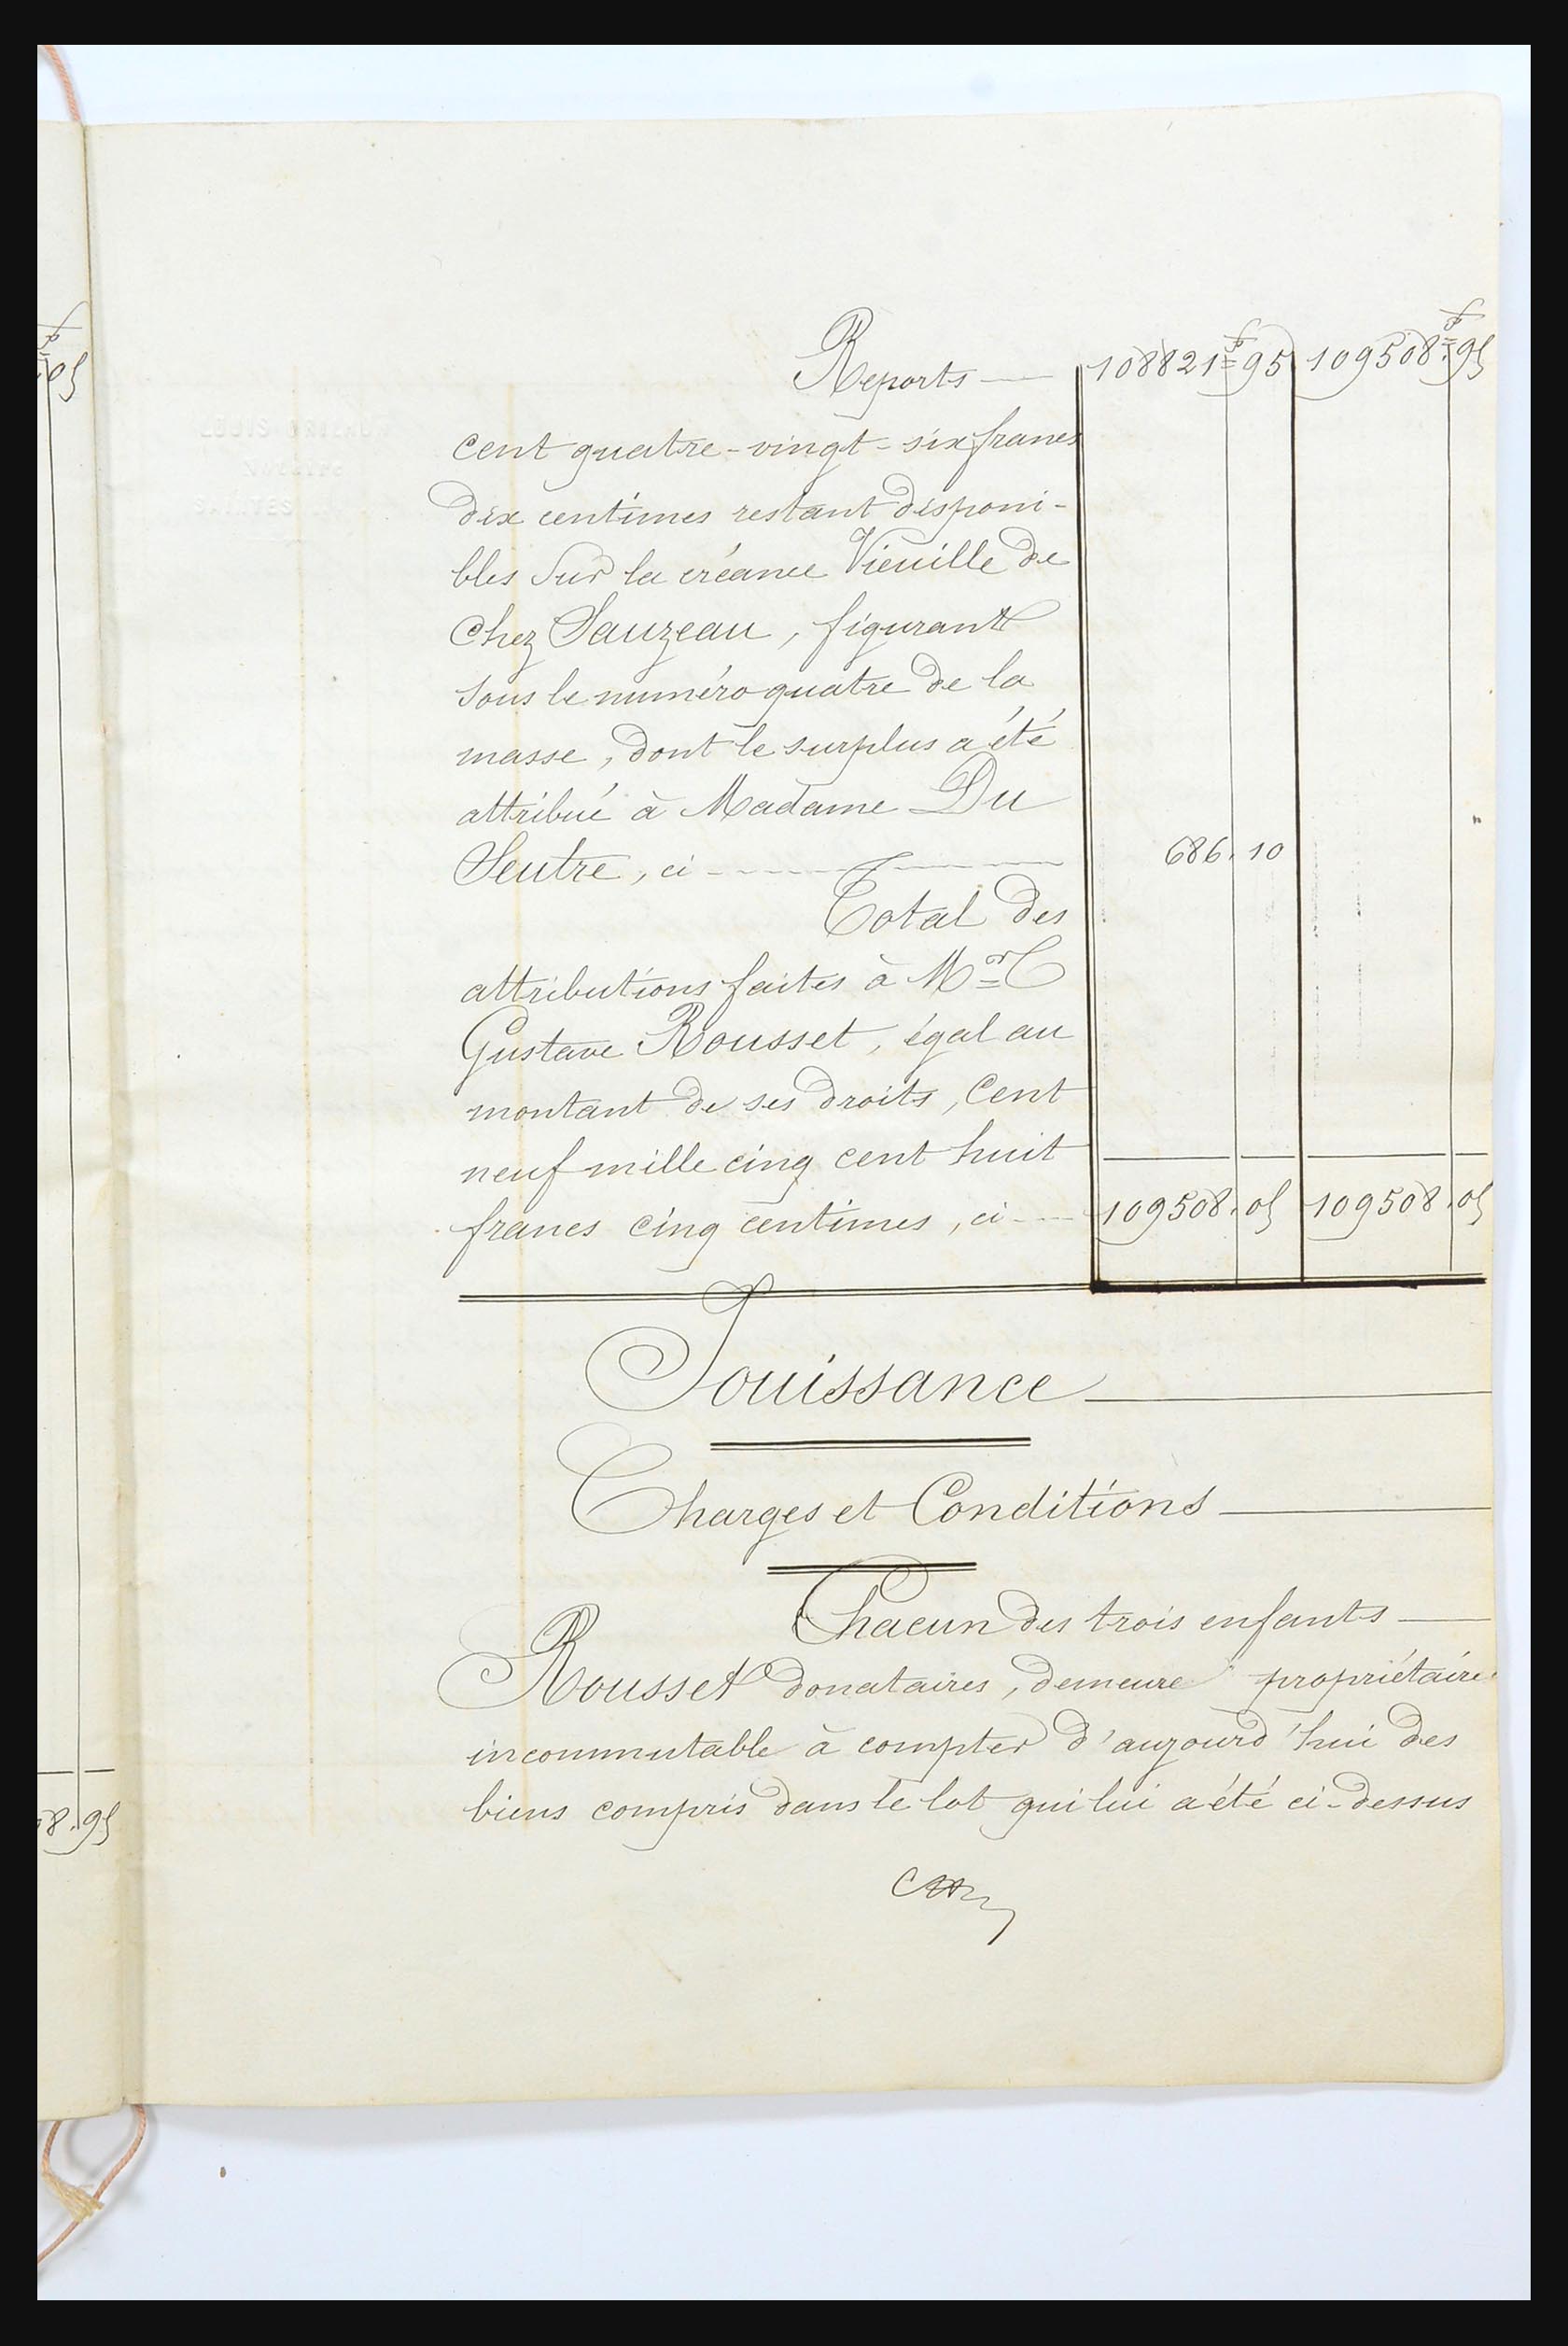 Reports — 108821 fs 95 109508 fs 95
05
cent quatre-vingt-six francs
dix centimes restant disponi-
bles sur la créance Vieuille de
chez Sauzeau, figurant
sous le numéro quatre de la
masse, dont le surplus a été
attribué à Madame Du
Seutre, ci — 686. 10
Total des
attributions faites à Mor C
Gustave Rousset, égal au
montant de ses droits, Cent
neuf mille cinq cent huit
francs cinq centimes, ci — 109508. 05 109508. 05
Jouissance
Charges et Conditions
Chacun des trois enfants
Rousset donataires, demeure propriétaire
incommutable à compter d'aujourd'hui des
biens compris dans le lot qui lui a été ci-dessus
8. 95